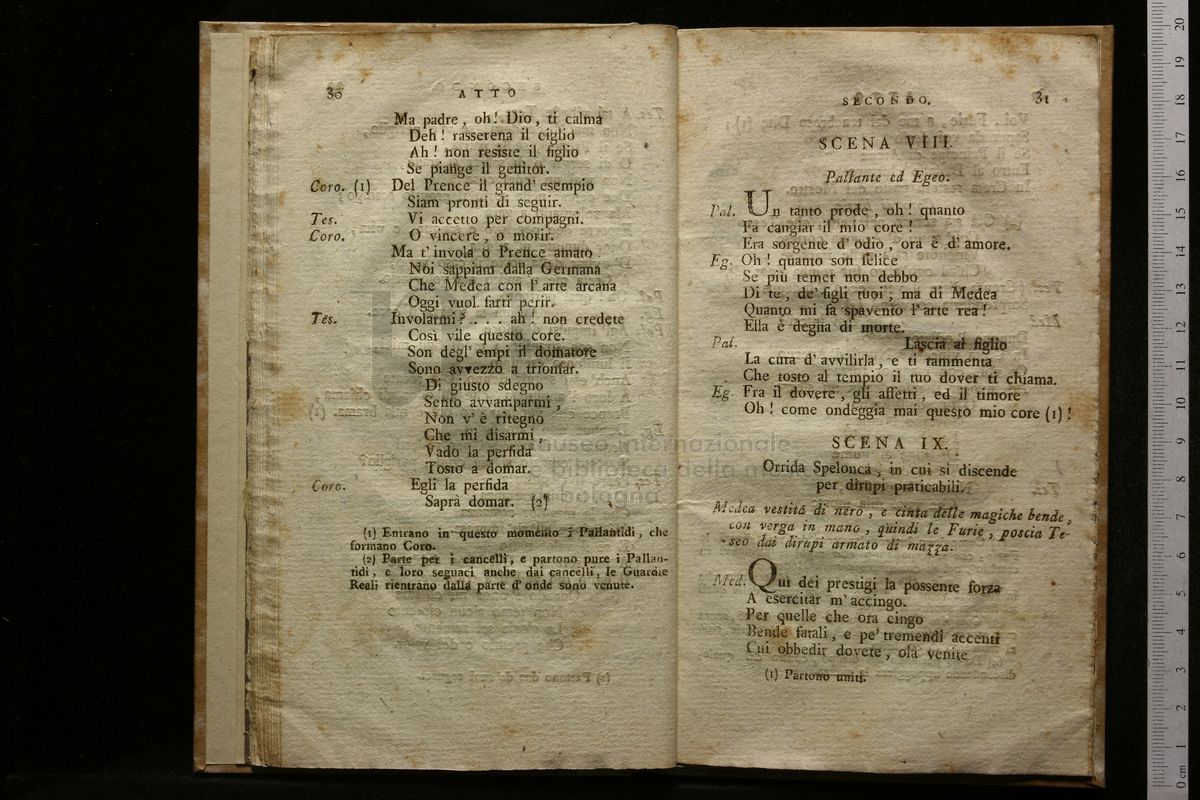 30
ATTO
Ma padre, oh! Dio, ti calma
Deh! rasserena il ciglio
Ah! non resiste il figlio
Se piange il genitor.
Coro. (1) Del Prence il grand' esempio
Siam pronti di seguir.
Tes. Vi accetto per compagni.
Coro. O vincere, o morir.
Ma t'invola o Prence amato
Noi sappiam dalla Germana
Che Medea con l'arte arcana
Oggi vuol farti perir.
Tes. Involarmi?... ah! non credete
Così vile questo core.
Son degl'empi il domatore
Sono avvezzo a trionfar.
Di giusto sdegno
Sento avvamparmi,
Non v'è ritegno
Che mi disarmi,
Vado la perfida
Tosto a domar.
Coro. Egli la perfida
Saprà domar. (2)
(1) Entrano in questo momento i Pallantidi, che
formano Coro.
(2) Parte per i cancelli, e partono pure i Pallan-
tidi, e loro seguaci anche dai cancelli, le Guardie
Reali rientrano dalla parte d'onde sono venute.
SECONDO.
31
SCENA VIII.
Pallante ed Egeo.
Pal. Un tanto prode, oh! quanto
Fa cangiar il mio core!
Era sorgente d'odio, ora è d'amore.
Eg. Oh! quanto son felice
Se più temer non debbo
Di te, de' figli tuoi, ma di Medea
Quanto mi fa spavento l'arte rea!
Ella è degna di morte.
Pal. Lascia al figlio
La cura d'avvilirla, e ti rammenta
Che tosto al tempio il tuo dover ti chiama.
Eg. Fra il dovere, gli affetti, ed il timore
Oh! come ondeggia mai questo mio core (1)!
SCENA IX.
Orrida Spelonca, in cui si discende
per dirupi praticabili.
Medea vestita di nero, e cinta delle magiche bende,
con verga in mano, quindi le Furie, poscia Te-
seo dai dirupi armato di mazza.
Med. Quì dei prestigi la possente forza
A esercitar m'accingo.
Per quelle che ora cingo
Bende fatali, e pe' tremendi accenti
Cui obbedir dovete, olà venite
(1) Partono uniti.
museo internazionale
e biblioteca della m
bologna
0 cm 1 2 3 4 5 6 7 8 9 10 11 12 13 14 15 16 17 18 19 20